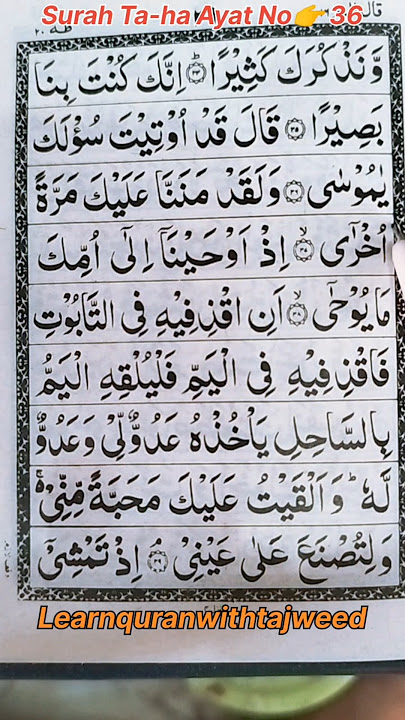 Surah Ta-ha Ayat No👉36
قال
طه ٢٠
وَّنَذْكُرَكَ كَثِيْرًا ﴿٣٤﴾ اِنَّكَ كُنْتَ بِنَا
بَصِيْرًا ﴿٣٥﴾ قَالَ قَدْ اُوْتِيْتَ سُؤْلَكَ
يٰمُوْسٰى ﴿٣٦﴾ وَلَقَدْ مَنَنَّا عَلَيْكَ مَرَّةً
اُخْرٰٓى ﴿٣٧﴾ اِذْ اَوْحَيْنَاۤ اِلٰٓى اُمِّكَ
مَا يُوْحٰٓى ﴿٣٨﴾ اَنِ اقْذِفِيْهِ فِى التَّابُوْتِ
فَاقْذِفِيْهِ فِى الْيَمِّ فَلْيُلْقِهِ الْيَمُّ
بِالسَّاحِلِ يَاْخُذْهُ عَدُوٌّ لِّىْ وَعَدُوٌّ
لَّهٗ ؕ وَاَلْقَيْتُ عَلَيْكَ مَحَبَّةً مِّنِّىْ
وَلِتُصْنَعَ عَلٰى عَيْنِىْ ﴿٣٩﴾ اِذْ تَمْشِىْۤ
Learnquranwithtajweed